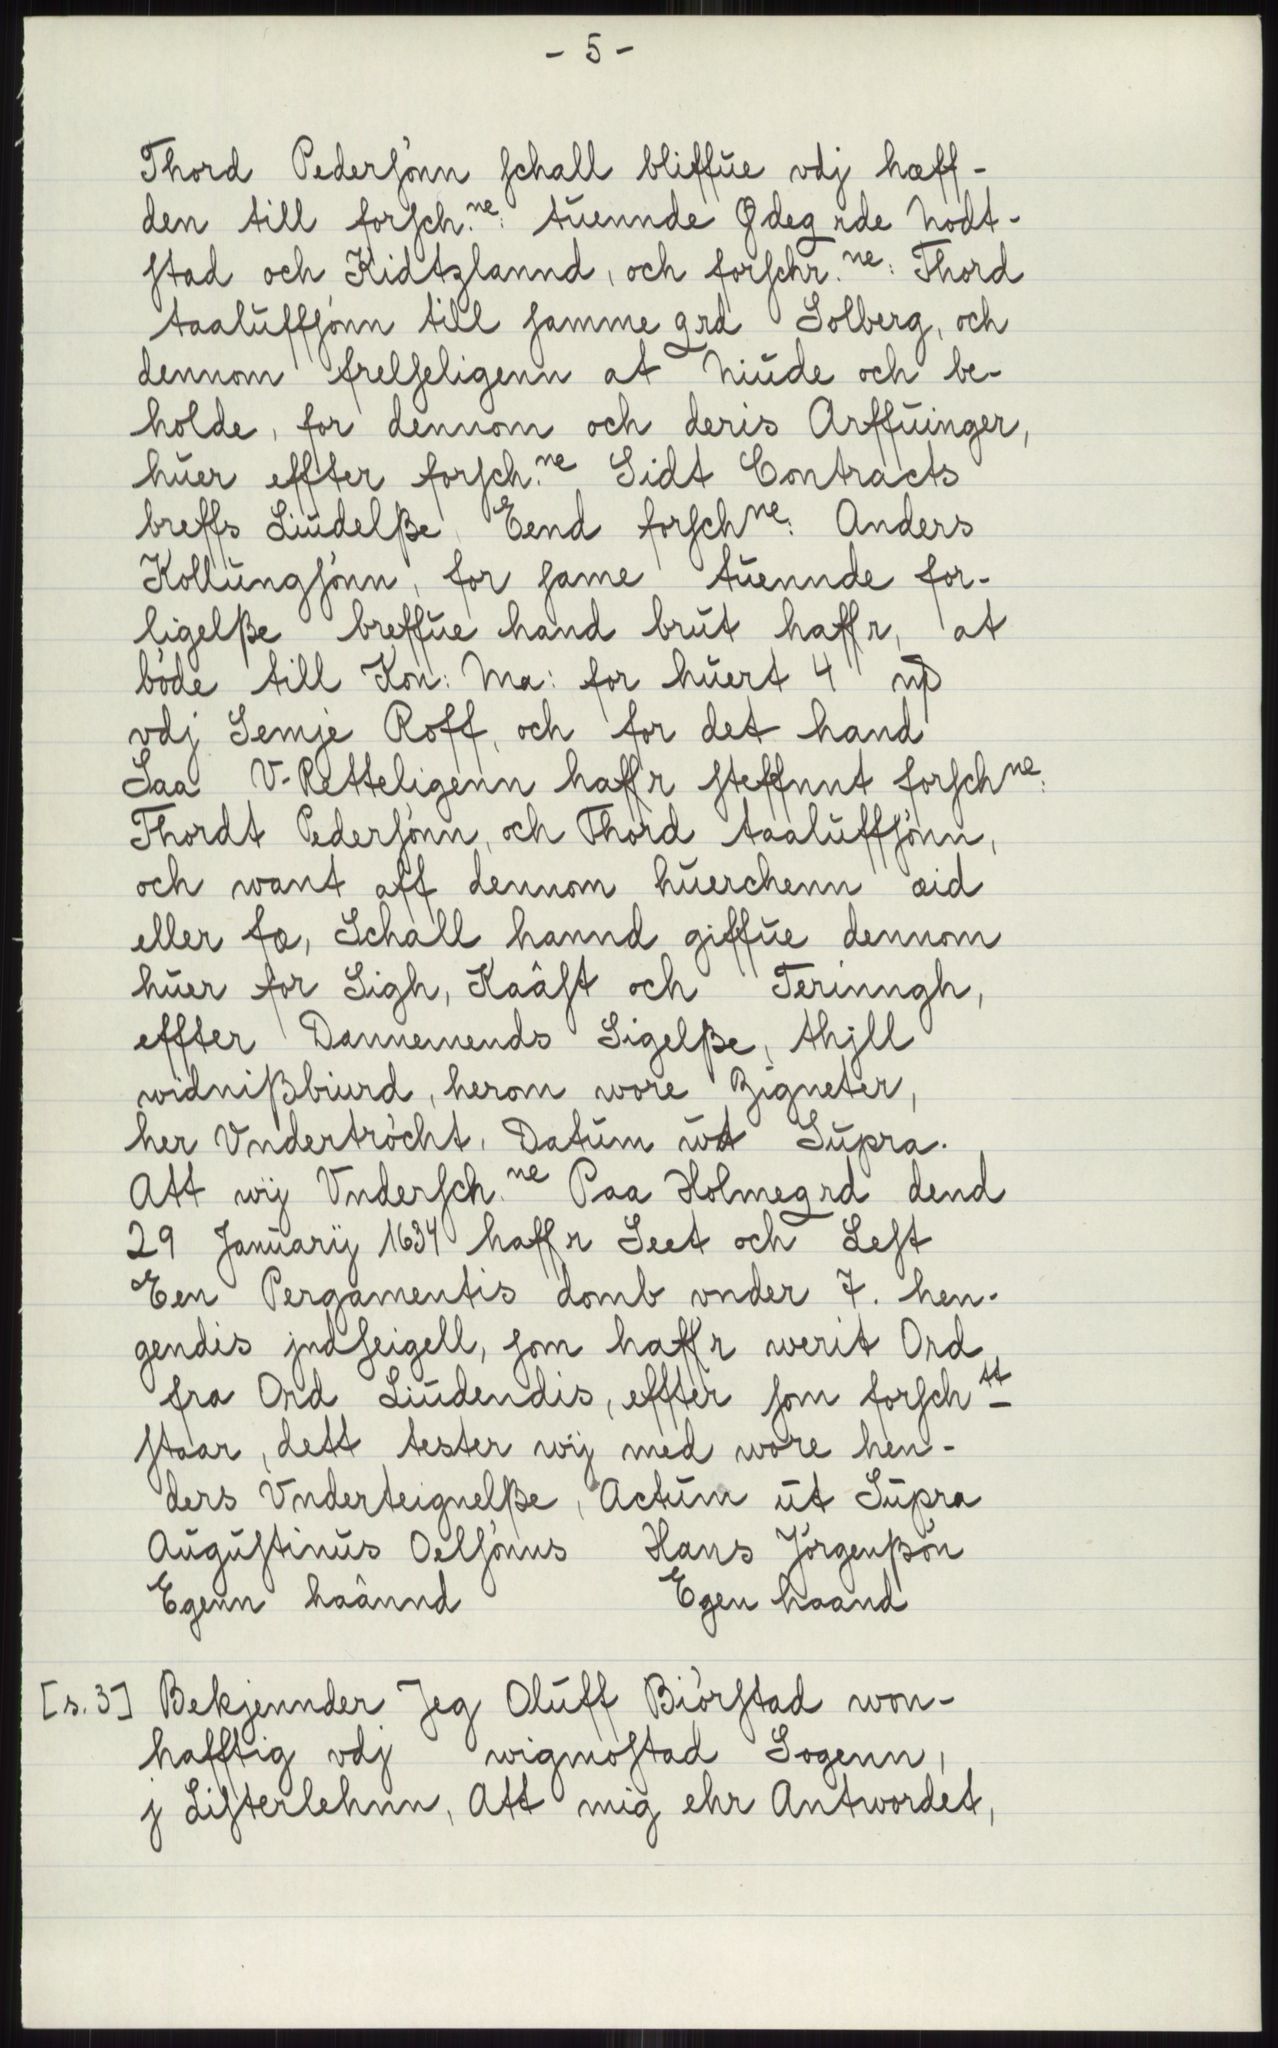 - 5 -
Thord Pedersönn schall bliffue vdj hæff-
den till forsch.ne: tuennde Ødegrde Nodt-
stad och Kidtzlannd, och forschr.ne: Thord
taaluffsönn till samme grd Solberg, och
dennom frelseligenn at Niude och be-
holde, for dennom och deris Arffuinger,
huer effter forsch.ne Sidt Contracts
breffs Liudelße, Eend forschne: Anders
Kollungsönn, for same tuennde for-
ligelße breffue hand brut haffr, at
böde till Kon: Ma: for huert 4 
vdj Semje Roff, och for det hand
Saa V-Retteligenn haffr steffnnt forschne:
Thordt Pedersönn, och Thord taaluffsönn,
och want aff dennom huerchenn æid
eller fæ, Schall hannd giffue dennom
huer for Sigh, Kaâst och Terinngh,
effter Dannemends Sigelße, thjll
widnißbiurd, herom wore Zigneter,
her Vndertröcht. Datum wt Supra.
Att wij Vndersch.ne Paa Holmegrd dend
29 Januarij 1634 haffr Seet och Lest
Een Pergamentis domb vnder 7. hen-
gendis jndseigell, som haffr werit Ord
fra Ord Liudendis, effter som forschtt
staar, dett tester wij med wore hen-
ders Vnderteignelße, Actum ut Supra
Augustinus Oelsönns Hans Jörgenßön
Egenn haânnd Egen haand
[s.3] Bekjennder Jeg Oluff Biörstad won-
hafftig vdj wigmostad Sogenn,
j Listerlehnn, Att mig ehr Antwordet,